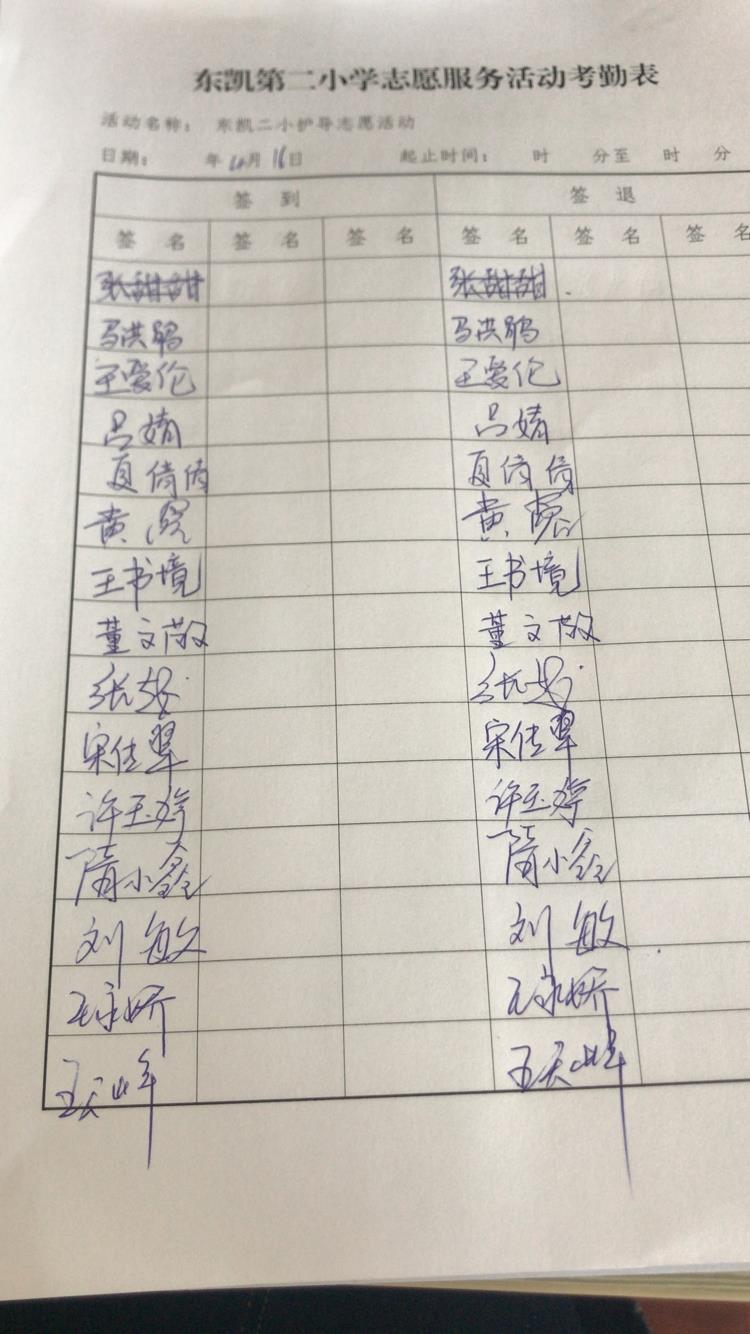 东凯第二小学志愿服务活动考勤表
活动名称： 东凯二小护导志愿活动
日期： 年 月16日 起止时间： 时 分至 时 分
签 到 签 退
签 名 签 名 签 名 签 名 签 名 签 名
张甜甜 张甜甜
马洪鹃 马洪鹃
王爱伦 王爱伦
吕婧 吕婧
夏倩倩 夏倩倩
黄 黄
王书境 王书境
董文敬 董文敬
张 张
宋佳翠 宋佳翠
许玉婷 许玉婷
隋小鑫 隋小鑫
刘敏 刘敏
王永娇 王永娇
王天峰 王天峰